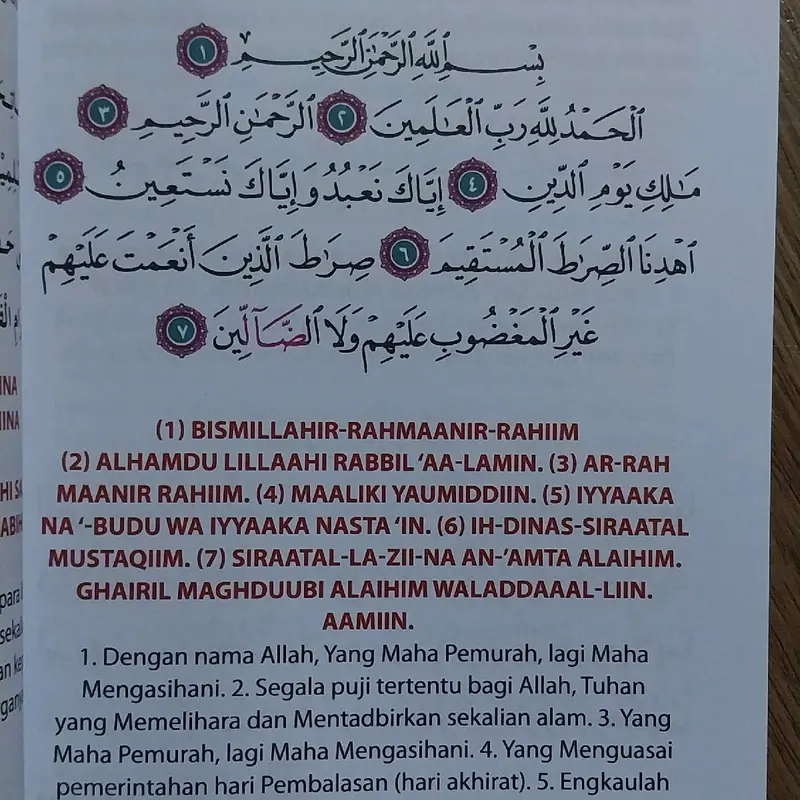 بِسْمِ ٱللَّهِ ٱلرَّحْمَٰنِ ٱلرَّحِيمِ ١
ٱلْحَمْدُ لِلَّهِ رَبِّ ٱلْعَٰلَمِينَ ٢ ٱلرَّحْمَٰنِ ٱلرَّحِيمِ ٣
مَٰلِكِ يَوْمِ ٱلدِّينِ ٤ إِيَّاكَ نَعْبُدُ وَإِيَّاكَ نَسْتَعِينُ ٥
ٱهْدِنَا ٱلصِّرَٰطَ ٱلْمُسْتَقِيمَ ٦ صِرَٰطَ ٱلَّذِينَ أَنْعَمْتَ عَلَيْهِمْ
غَيْرِ ٱلْمَغْضُوبِ عَلَيْهِمْ وَلَا ٱلضَّآلِّينَ ٧
(1) BISMILLAHIR-RAHMAANIR-RAHIIM
(2) ALHAMDU LILLAAHI RABBIL ‘AA-LAMIN. (3) AR-RAH
MAANIR RAHIIM. (4) MAALIKI YAUMIDDIIN. (5) IYYAAKA
NA ‘-BUDU WA IYYAAKA NASTA ‘IN. (6) IH-DINAS-SIRAATAL
MUSTAQIIM. (7) SIRAATAL-LA-ZII-NA AN-’AMTA ALAIHIM.
GHAIRIL MAGHDUUBI ALAIHIM WALADDAAAL-LIIN.
AAMIIN.
1. Dengan nama Allah, Yang Maha Pemurah, lagi Maha
Mengasihani. 2. Segala puji tertentu bagi Allah, Tuhan
yang Memelihara dan Mentadbirkan sekalian alam. 3. Yang
Maha Pemurah, lagi Maha Mengasihani. 4. Yang Menguasai
pemerintahan hari Pembalasan (hari akhirat). 5. Engkaulah